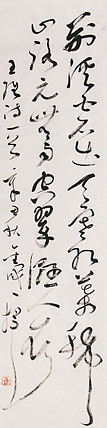 荆溪白石出天寒紅葉稀
山路元無雨空翠濕人衣
王維詩一首 辛丑秋